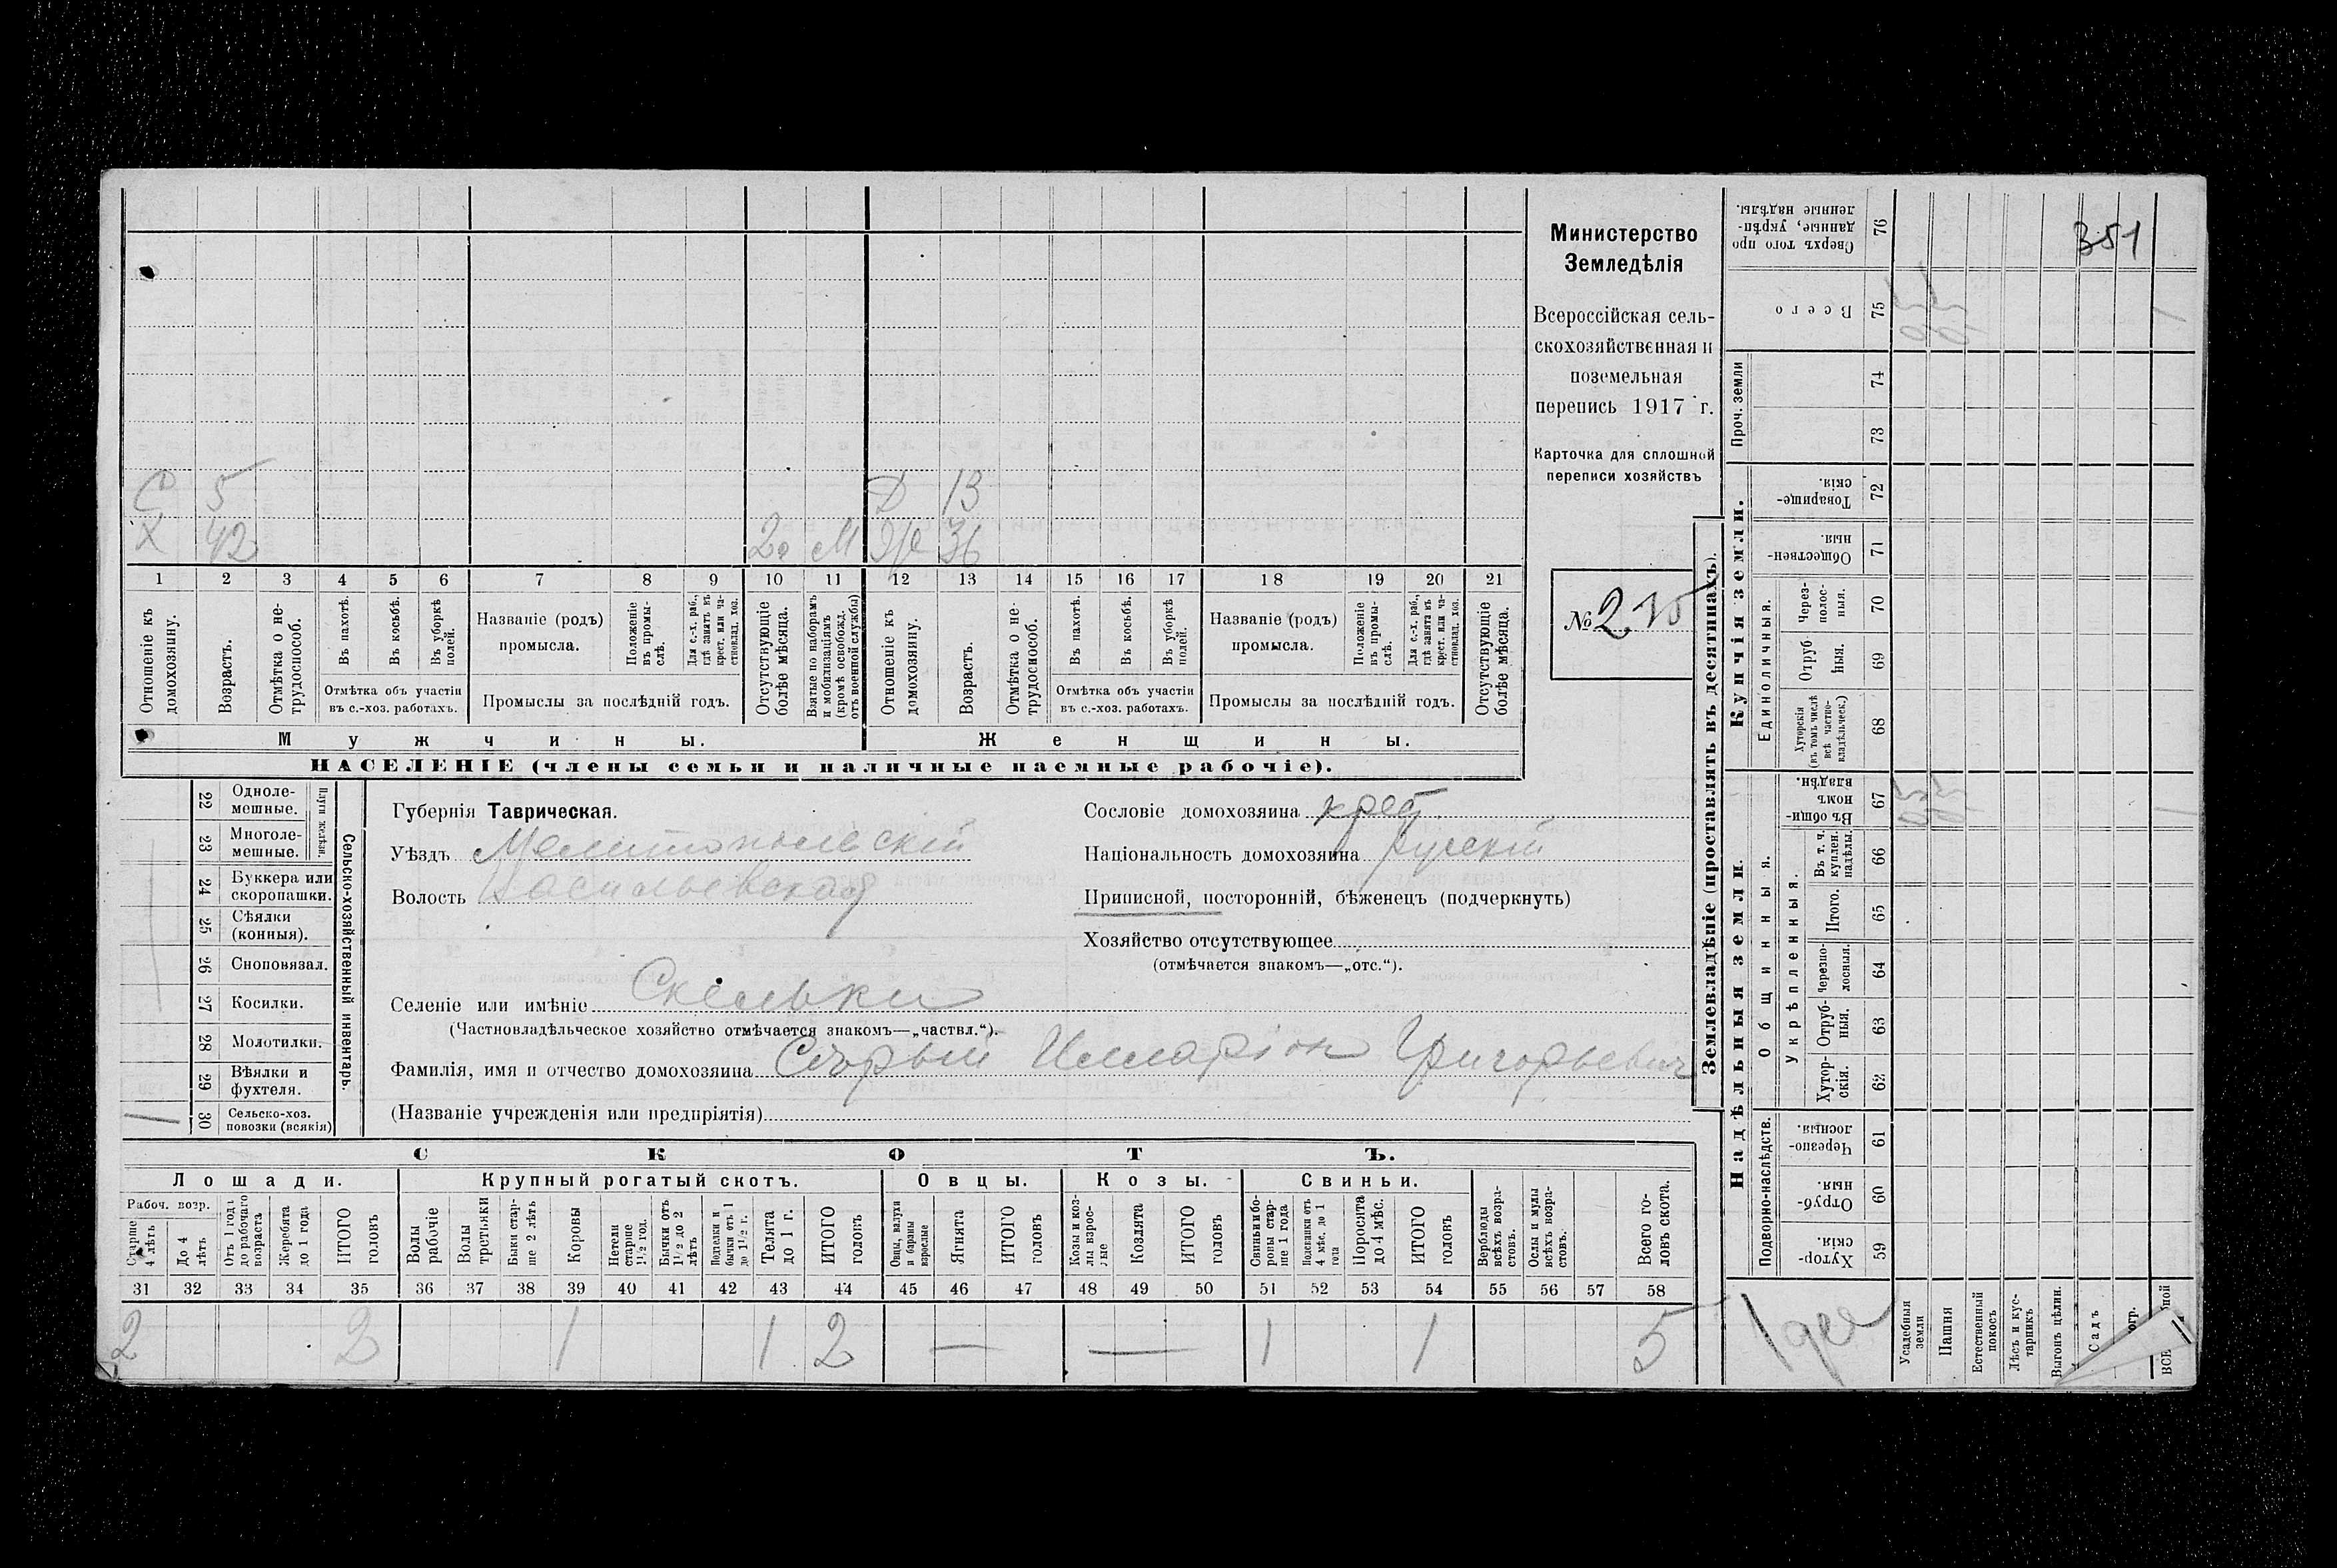 351
Министерство
Земледѣлія
Всероссійская сель-
скохозяйственная и
поземельная
перепись 1917 г.
Карточка для сплошной
переписи хозяйствъ
№ 215
С 5 Д 13
Х 42 20 М Же 36
1 2 3 4 5 6 7 8 9 10 11 12 13 14 15 16 17 18 19 20 21
Отношеніе къ домохозяину.
Возрастъ.
Отмѣтка о не-трудоспособ.
Въ пахотѣ.
Въ косьбѣ.
Въ уборкѣ полей.
Отмѣтка объ участіи
въ с.-хоз. работахъ.
Названіе (родъ)
промысла.
Положеніе въ промы-слѣ.
Для с.-х. раб., гдѣ занятъ въ крест. или ча-стновлад. хоз.
Промыслы за послѣдній годъ.
Отсутствующіе болѣе мѣсяца.
Взятые по наборамъ и мобилизаціямъ (кромѣ освобожд. отъ военной службы)
Отношеніе къ домохозяину.
Возрастъ.
Отмѣтка о не-трудоспособ.
Въ пахотѣ.
Въ косьбѣ.
Въ уборкѣ полей.
Отмѣтка объ участіи
въ с.-хоз. работахъ.
Названіе (родъ)
промысла.
Положеніе въ промы-слѣ.
Для с.-х. раб., гдѣ занята въ крест. или ча-стновлад. хоз.
Промыслы за послѣдній годъ.
Отсутствующіе болѣе мѣсяца.
Мужчины. Женщины.
НАСЕЛЕНІЕ (члены семьи и наличные наемные рабочіе).
22 Одноле-мешные.
23 Многоле-мешные.
Плуги желѣзн.
24 Буккера или скоропашки.
25 Сѣялки (конныя).
26 Сноповязал.
27 Косилки.
28 Молотилки.
29 Вѣялки и фухтеля.
30 Сельско-хоз. повозки (всякія) 1
Сельско-хозяйственный инвентарь.
Губернія Таврическая.
Уѣздъ Мелитопольскій
Волость Васильевская
Селеніе или имѣніе Скельки
(Частновладѣльческое хозяйство отмѣчается знакомъ—„частвл.“).
Фамилія, имя и отчество домохозяина Сѣрый Илларіон Григорьевич
(Названіе учрежденія или предпріятія)
Сословіе домохозяина крес
Національность домохозяина Русскій
Приписной, посторонній, бѣженец (подчеркнуть)
Хозяйство отсутствующее
(отмѣчается знакомъ—„отс.“).
СКОТЪ.
Лошади. Крупный рогатый скотъ. Овцы. Козы. Свиньи.
Рабоч. возр.
Старше 4 лѣтъ
До 4 лѣтъ
Отъ 1 года до рабочаго возраста
Жеребята до 1 года
ИТОГО головъ
Волы рабочіе
Волы третьяки
Быки стар-ше 2 лѣтъ
Коровы
Нетели старше 1½ год.
Бычки отъ 1½ до 2 лѣтъ
Подтелки и бычки отъ 1 до 1½ г.
Телята до 1 г.
ИТОГО головъ
Овцы, валухи и бараны взрослые
Ягнята
ИТОГО головъ
Козы и коз-лы взрос-лые
Козлята
ИТОГО головъ
Свиньи и бо-ровы стар-ше 1 года
Подсвинки отъ 4 мѣс. до 1 года
Поросята до 4 мѣс.
ИТОГО головъ
Верблюды всѣхъ возра-стовъ.
Ослы и мулы всѣхъ возра-стовъ.
Всего го-ловъ скота.
31 32 33 34 35 36 37 38 39 40 41 42 43 44 45 46 47 48 49 50 51 52 53 54 55 56 57 58
2 2 1 1 2 — — 1 1 5
Землевладѣніе (проставлять въ десятинахъ).
Купчія земли.
Надѣльныя земли.
Сверхъ того про данные, укрѣп-ленные надѣлы. 76
Всего 75
Проч. земли 74 73
Товарище-скія. 72
Обществен-ныя. 71
Единоличныя.
Через-полос-ныя. 70
Отруб ныя. 69
Хуторскія (въ томъ числѣ всѣ частно-владѣльческ.) 68
Общинныя.
Въ общи-номъ владѣн. 67
Укрѣпленныя.
Въ т. ч. куплен. надѣлы. 66
Итого. 65
Черезпо-лосныя. 64
Отруб-ныя. 63
Хутор-скія. 62
Подворно-наслѣдств.
Черезпо-лосныя. 61
Отруб-ныя. 60
Хутор-скія. 59
Усадебныя земли
Пашня
Естественный покосъ
Лѣсъ и кус-тарникъ
Выгонъ цѣлин.
Садъ